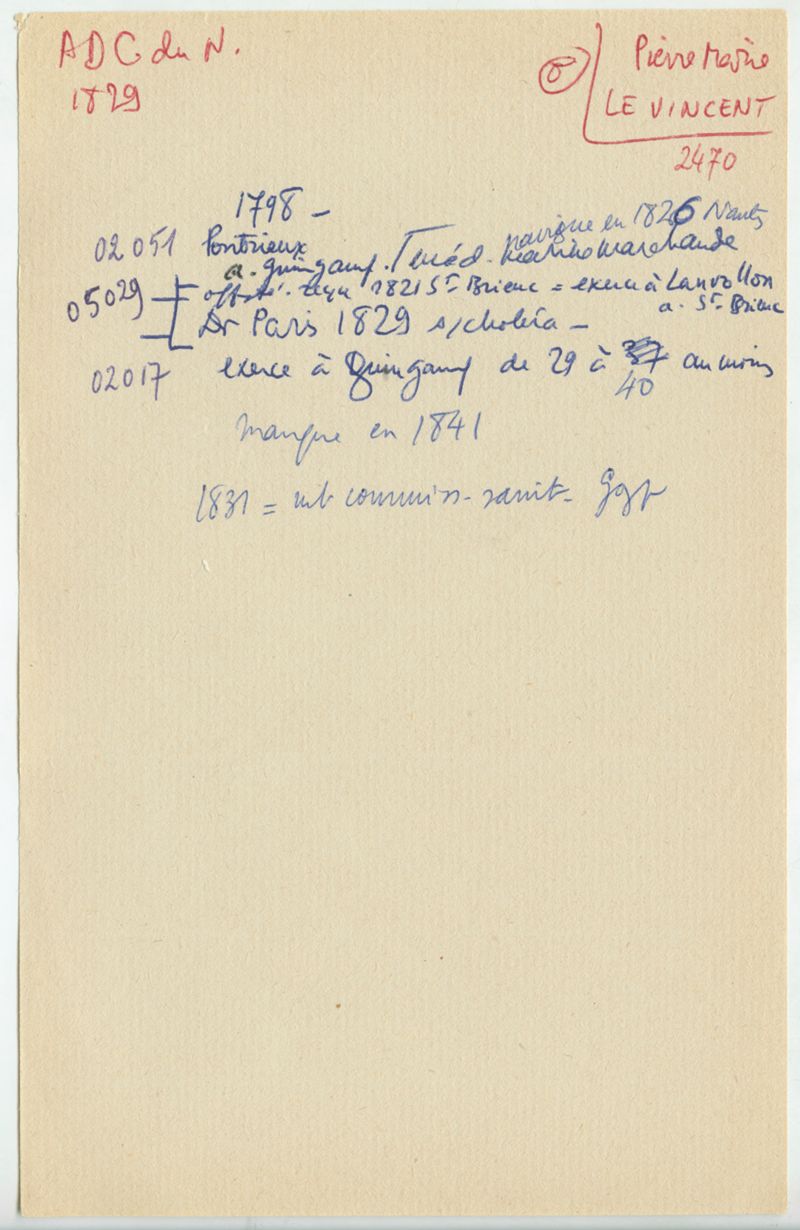 ADC. du N.
1829
Pierre Marie
LE VINCENT
2470
1798 -
navigue en 1826 Nantes
02 051 Pontrieux
a. Guingamp. méd. marine marchande
05029 off. té. reçu 1821 St Brieuc = exerce à Lanvollon
a. St Brieuc
Dr Paris 1829 s/choléra -
02017 exerce à Guingamp de 29 à 37 au moins
40
manque en 1841
1831 = mb commiss. sanit. Ggp